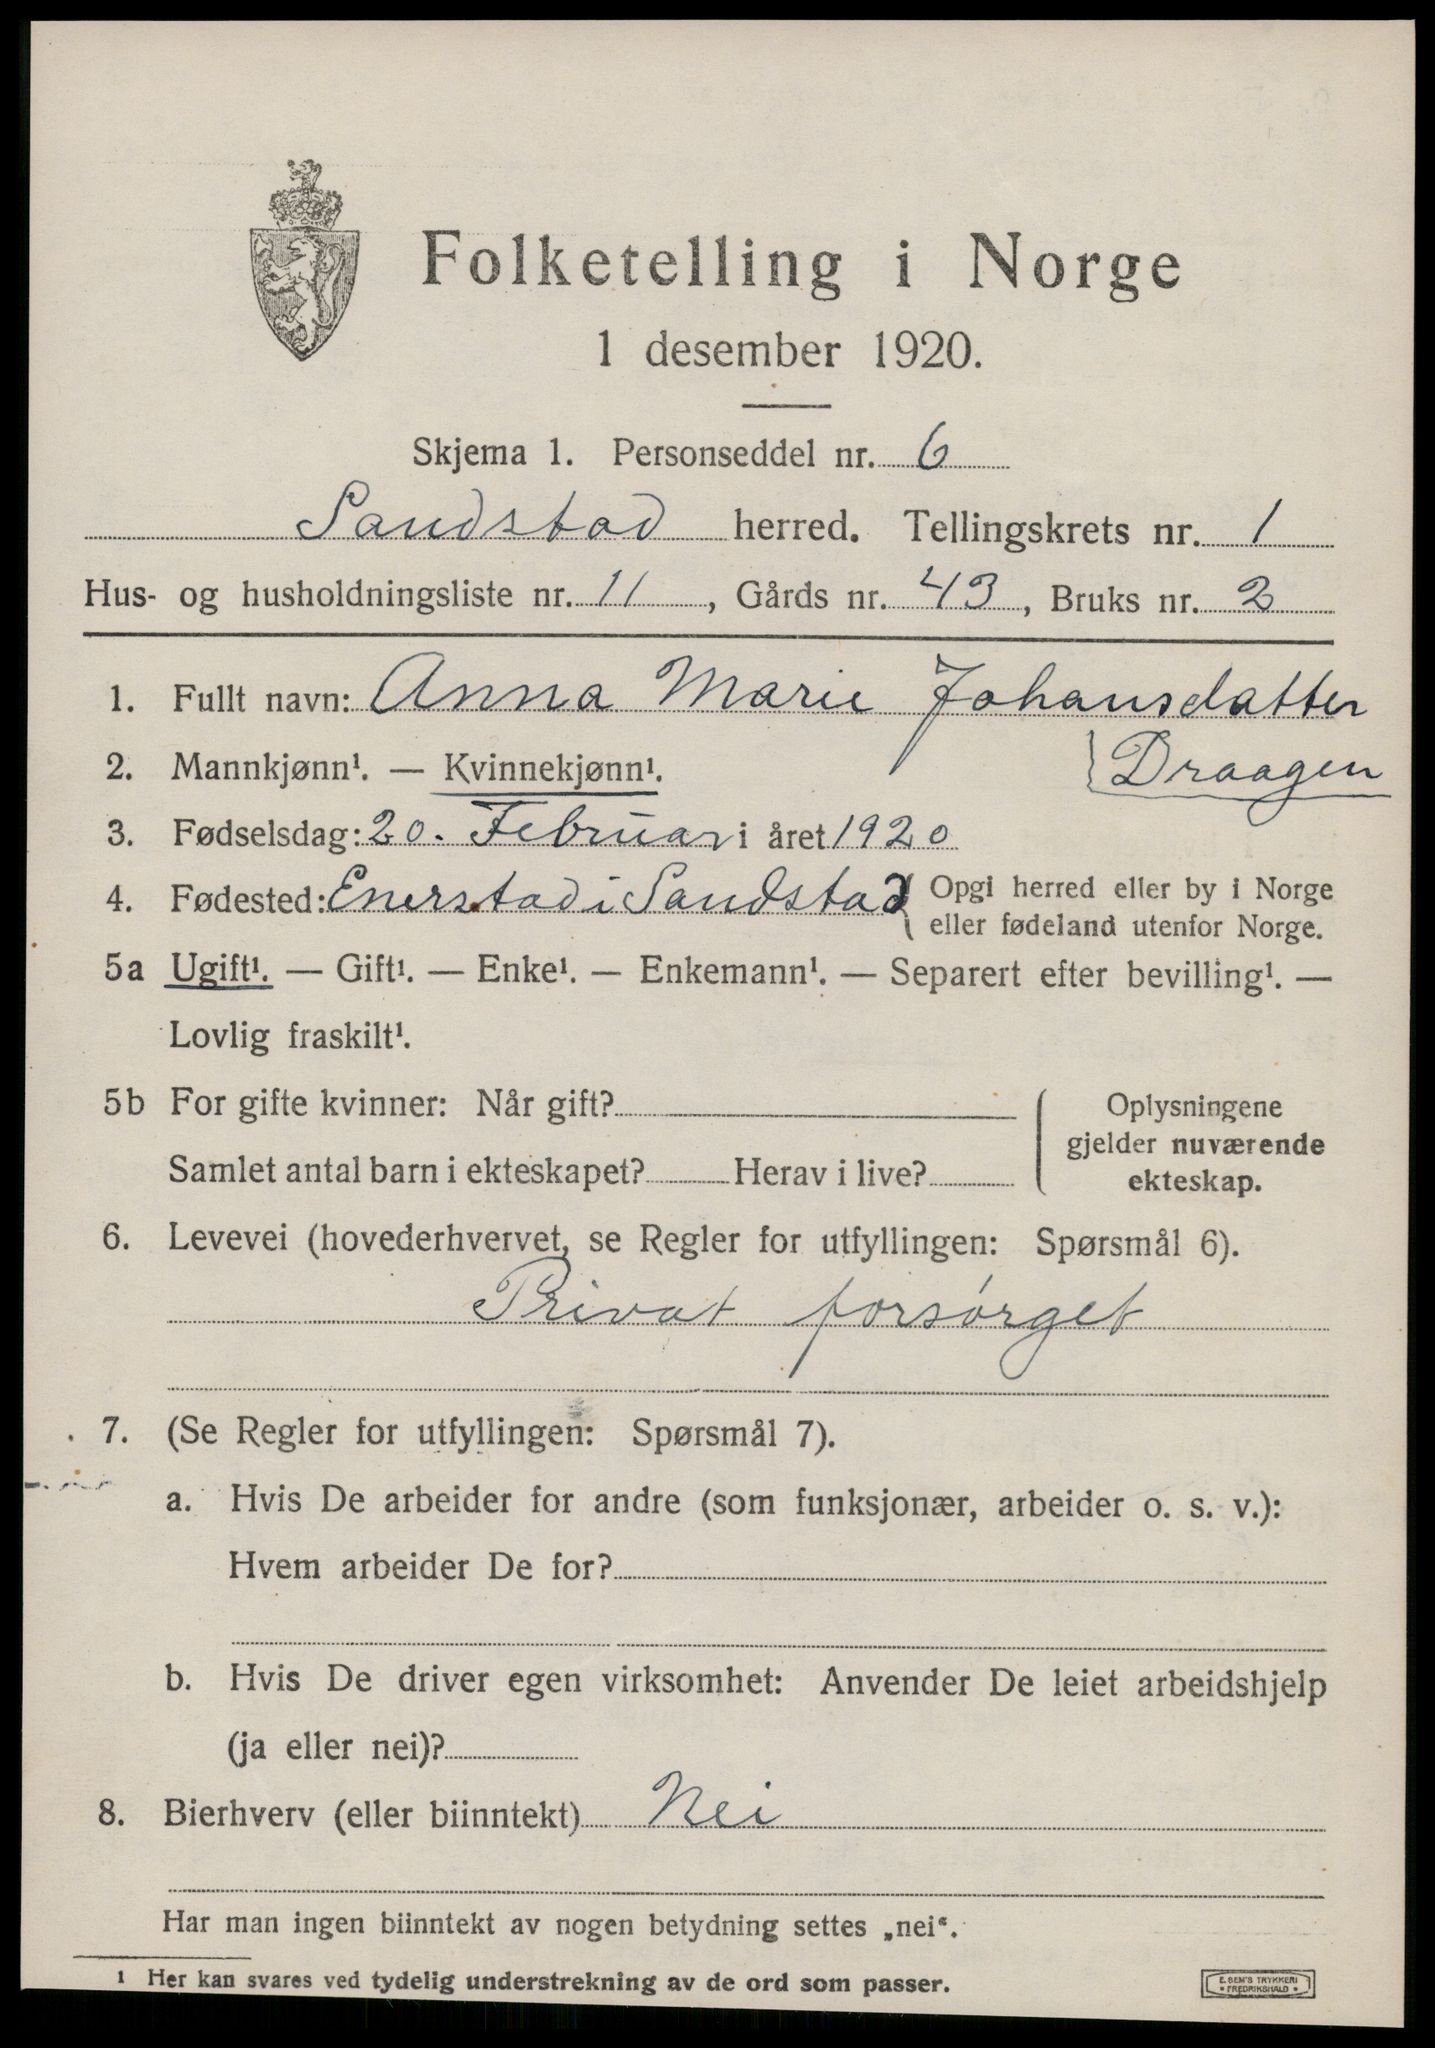 Folketelling i Norge
1 desember 1920.
Skjema 1. Personseddel nr. 6
Sandstad herred. Tellingskrets nr. 1
Hus- og husholdningsliste nr. 11, Gårds nr. 43, Bruks nr. 2
1. Fullt navn: Anna Marie Johansdatter
Draagen
2. Mannkjønn¹. — Kvinnekjønn¹.
3. Fødselsdag: 20. Februar i året 1920
4. Fødested: Enerstad i Sandstad Opgi herred eller by i Norge
eller fødeland utenfor Norge.
5a Ugift¹. — Gift¹. — Enke¹. — Enkemann¹. — Separert efter bevilling¹. —
Lovlig fraskilt¹.
5b For gifte kvinner: Når gift?
Samlet antal barn i ekteskapet? Herav i live?
Oplysningene
gjelder nuværende
ekteskap.
6. Levevei (hovederhvervet, se Regler for utfyllingen: Spørsmål 6).
Privat forsørget
7. (Se Regler for utfyllingen: Spørsmål 7).
a. Hvis De arbeider for andre (som funksjonær, arbeider o. s. v.):
Hvem arbeider De for?
b. Hvis De driver egen virksomhet: Anvender De leiet arbeidshjelp
(ja eller nei)?
8. Bierhverv (eller biinntekt) Nei
Har man ingen biinntekt av nogen betydning settes „nei“.
¹ Her kan svares ved tydelig understrekning av de ord som passer.
E. SEM'S TRYKKERI
• FREDRIKSHALD •